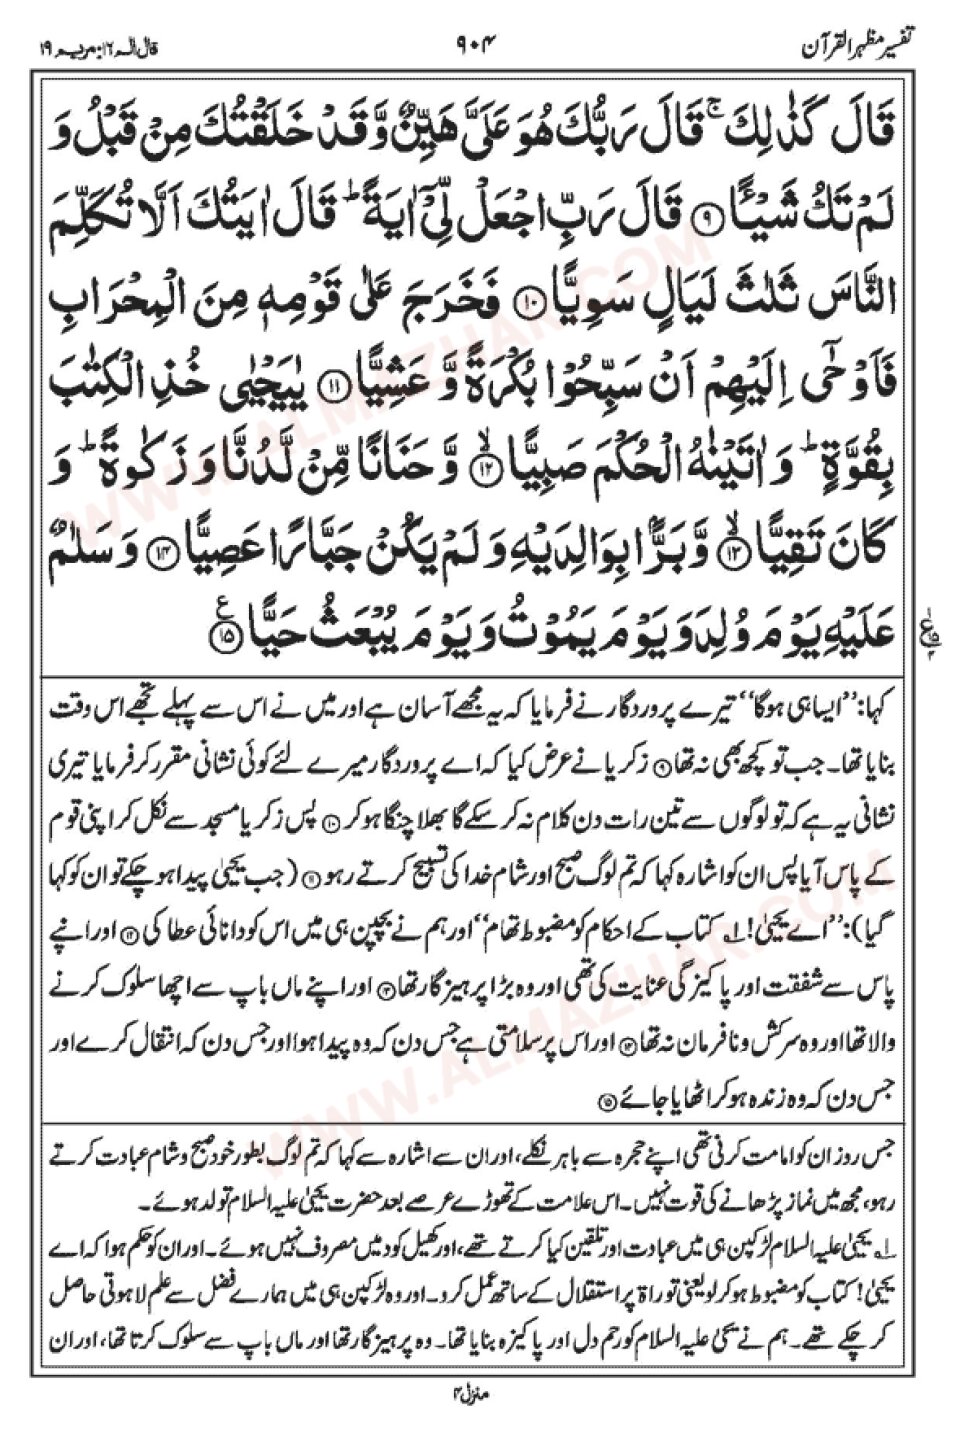 تفسیر مظہر القرآن ۹۰۴ قال الم ۱۶: مریم ۱۹
قَالَ كَذٰلِكَ ۚ قَالَ رَبُّكَ هُوَ عَلَیَّ هَیِّنٌ وَّ قَدْ خَلَقْتُكَ مِنْ قَبْلُ وَ
لَمْ تَكُ شَیْـًٔا ۹ قَالَ رَبِّ اجْعَلْ لِّیْۤ اٰیَةً ؕ قَالَ اٰیَتُكَ اَلَّا تُكَلِّمَ
النَّاسَ ثَلٰثَ لَیَالٍ سَوِیًّا ۱۰ فَخَرَجَ عَلٰی قَوْمِهٖ مِنَ الْمِحْرَابِ
فَاَوْحٰۤی اِلَیْهِمْ اَنْ سَبِّحُوْا بُكْرَةً وَّ عَشِیًّا ۱۱ یٰیَحْیٰی خُذِ الْكِتٰبَ
بِقُوَّةٍ ؕ وَ اٰتَیْنٰهُ الْحُكْمَ صَبِیًّا ۙ ۱۲ وَّ حَنَانًا مِّنْ لَّدُنَّا وَ زَكٰوةً ؕ وَ
كَانَ تَقِیًّا ۙ ۱۳ وَّ بَرًّۢا بِوَالِدَیْهِ وَ لَمْ یَكُنْ جَبَّارًا عَصِیًّا ۱۴ وَ سَلٰمٌ
عَلَیْهِ یَوْمَ وُلِدَ وَ یَوْمَ یَمُوْتُ وَ یَوْمَ یُبْعَثُ حَیًّا ۱۵ ع
کہا: ’’ایسا ہی ہوگا‘‘ تیرے پروردگار نے فرمایا کہ یہ مجھے آسان ہے اور میں نے اس سے پہلے تجھے اس وقت
بنایا تھا۔ جب تو کچھ بھی نہ تھا ۹ زکریا نے عرض کیا کہ اے پروردگار میرے لئے کوئی نشانی مقرر کر فرمایا تیری
نشانی یہ ہے کہ تو لوگوں سے تین رات دن کلام نہ کر سکے گا بھلا چنگا ہو کر ۱۰ پس زکریا مسجد سے نکل کر اپنی قوم
کے پاس آیا پس ان کو اشارہ کہا کہ تم لوگ صبح اور شام خدا کی تسبیح کرتے رہو ۱۱ (جب یحییٰ پیدا ہو چکے تو ان کو کہا
گیا): ’’اے یحییٰ! ۱؎ کتاب کے احکام کو مضبوط تھام‘‘ اور ہم نے بچپن ہی میں اس کو دانائی عطا کی ۱۲ اور اپنے
پاس سے شفقت اور پاکیزگی عنایت کی تھی اور وہ بڑا پرہیزگار تھا ۱۳ اور اپنے ماں باپ سے اچھا سلوک کرنے
والا تھا اور وہ سرکش و نافرمان نہ تھا ۱۴ اور اس پر سلامتی ہے جس دن کہ وہ پیدا ہوا اور جس دن کہ انتقال کرے اور
جس دن کہ وہ زندہ ہو کر اٹھایا جائے ۱۵
جس روز ان کو امامت کرنی تھی اپنے حجرہ سے باہر نکلے، اور ان سے اشارہ سے کہا کہ تم لوگ بطور خود صبح و شام عبادت کرتے
رہو، مجھ میں نماز پڑھانے کی قوت نہیں۔ اس علامت کے تھوڑے عرصے بعد حضرت یحییٰ علیہ السلام تولد ہوئے۔
۱؎ یحییٰ علیہ السلام لڑکپن ہی میں عبادت اور تلقین کیا کرتے تھے، اور کھیل کود میں مصروف نہیں ہوئے۔ اور ان کو حکم ہوا کہ اے
یحییٰ! کتاب کو مضبوط ہو کر لو یعنی توراۃ پر استقلال کے ساتھ عمل کرو۔ اور وہ لڑکپن ہی میں ہمارے فضل سے علم لاہوتی حاصل
کر چکے تھے۔ ہم نے یحییٰ علیہ السلام کو رحم دل اور پاکیزہ بنایا تھا۔ وہ پرہیزگار تھا اور ماں باپ سے سلوک کرتا تھا، اور ان
منزل ۴
WWW.ALMAZHAR.COM
WWW.ALMAZHAR.COM